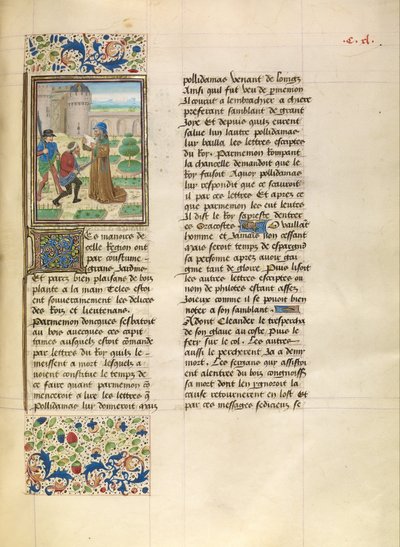 .C. xl.
Les manoirs de
celle Region ont
par coustume
grans Jardins
Et parcz bien plaisans de bois
plante a la main / Et ces estoi
ent souverainement les delices
des Rois et lieutenans.
Parmenon doncques sesbatoit
au bois avecques ces capi
taines ausquelz estoit commande
par lettres du Roy quilz le
meissent a mort lesquelz a
voient constitue le temps de
ce faire quant parmenon com
menceroit a lire les lettres que
Pollidamas luy donneroit / mais
pollidamas venant de loingz
Ainsi quil fut veu de parmenon
Il courut a lembrachier a chiere
preferant samblant de grant
Joye Et depuis quilz eurent
salue lun lautre pollidamas
luy bailla les lettres escriptes
du Roy. Parmenon Rompant
la chancelle demandoit que le
Roy faisoit / Aquoy pollidamas
luy respondit que ce scauroit
il par ces lettres Et apres ce
que parmenon les eut leutes
Il dist le Roy sapreste dentrer
es Oracostes O vaillant
homme et Jamais non cessant
mais seroit temps de espargner
sa personne apres avoir gai
gnie tant de gloire Puis lisoit
les autres lettres escriptes ou
nom de philotes estant assez
Joieux comme il se pouoit bien
noter a son samblant.
Adont Cleander le tresperca
de son glaive au coste. Puis le
fery sur le col. Les autres
aussi le percherent Ja a demy
mort. Les sergans qui assistoi
ent alentree du bois congnoiss
sa mort dont ilz ygnoroient la
cause retournerent en lost Et
par ces messages sedicieux se